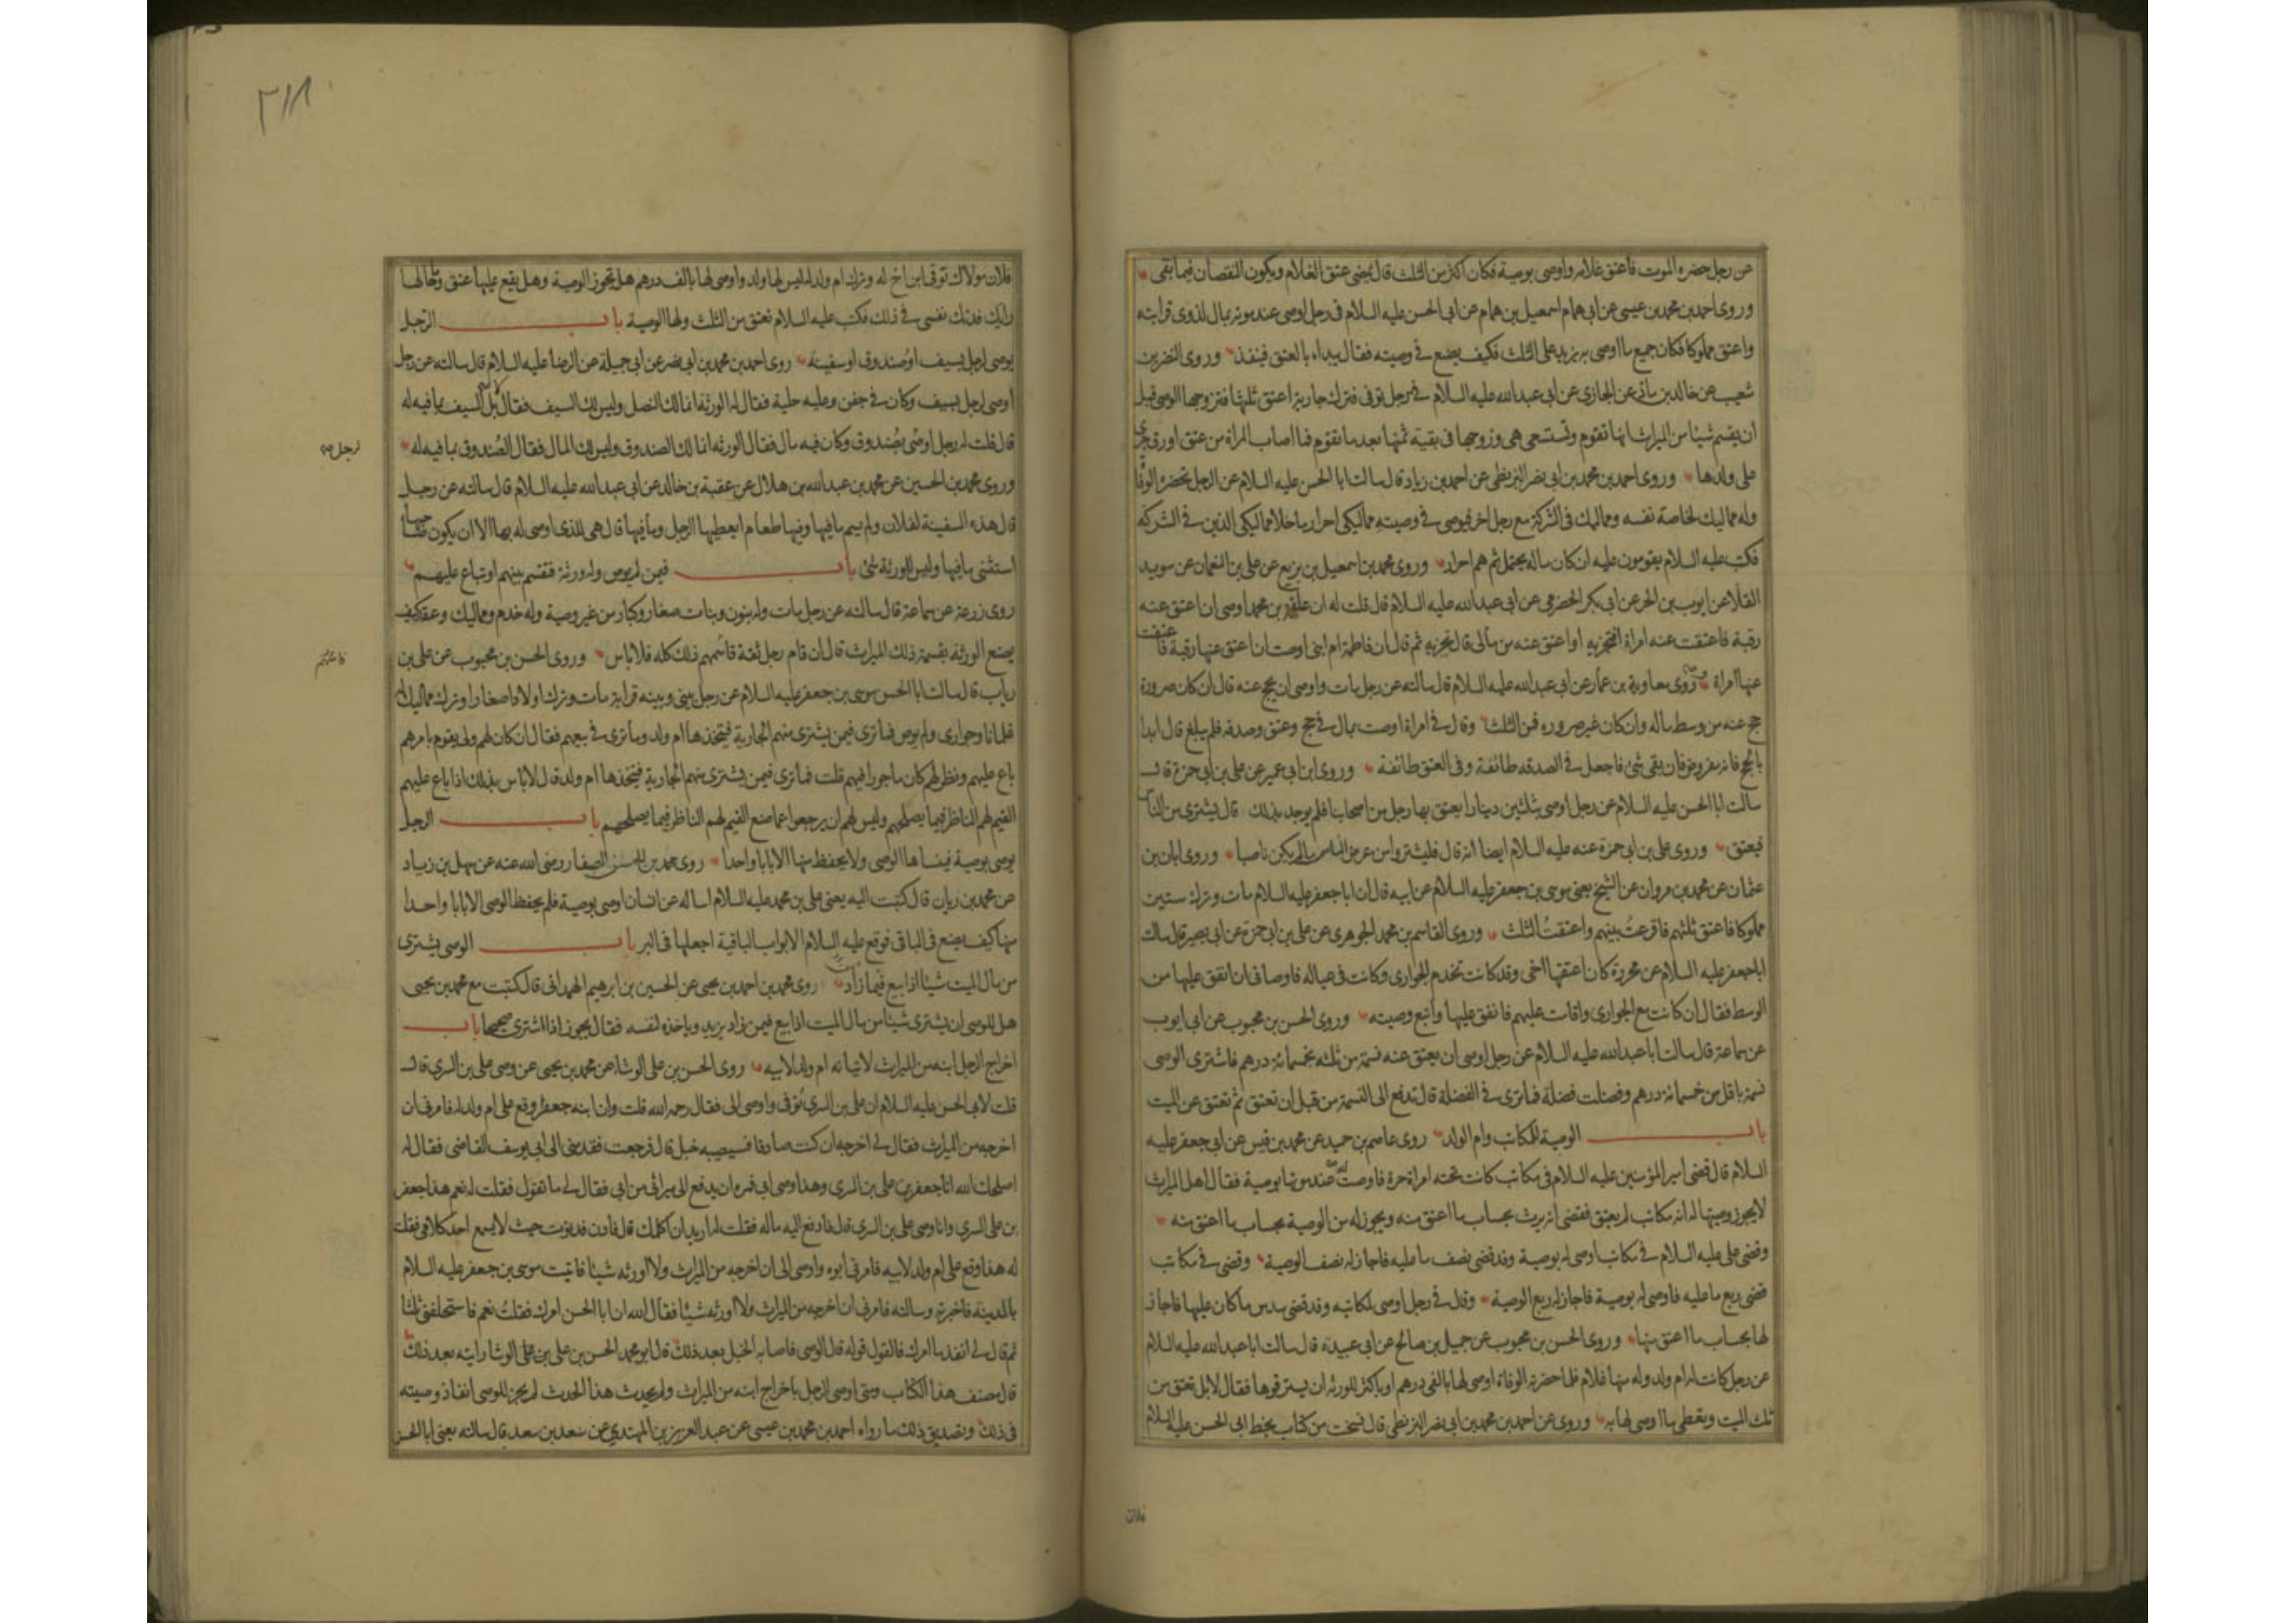 عن رجل حضره الموت فاعتق غلامه واوصى بوصية فكان اكثر من الثلث قال يمضى عتق الغلام ويكون النقصان فيما بقى
وروى احمد بن محمد بن عيسى عن ابى همام اسمعيل بن همام عن ابى الحسن عليه السلام فى رجل اوصى عند موته بمال لذوى قرابته
واعتق مملوكا فكان جميع ما اوصى به يزيد على الثلث فكيف يصنع فى وصيته فقال يبداء بالعتق فينفذ وروى النضر بن
شعيب عن خالد بن ماد عن الجازى عن ابى عبد الله عليه السلام فى رجل توفى فترك جارية اعتق ثلثها فتزوجها الوصى قبل
ان يقسم شيئا من الميراث انها تقوم وتستسعى هى وزوجها فى بقية ثمنها بعد ما تقوم فما اصاب المراة من عتق اورق جرى
على ولدها وروى احمد بن محمد بن ابى نصر البزنطى عن احمد بن زياد قال سالت ابا الحسن عليه السلام عن الرجل تحضره الوفا
وله مماليك لخاصة نفسه ومماليك فى الشركة مع رجل اخر فيوصى فى وصيته مماليكى احرار ما خلا مماليكى الذين فى الشركه
فكتب عليه السلام يقومون عليه ان كان ماله يحتمل ثم هم احرار وروى محمد بن اسمعيل بن بزيع عن على بن النعمان عن سويد
القلا عن ايوب بن الحر عن ابى بكر الحضرمى عن ابى عبد الله عليه السلام قال قلت له ان علقمة بن محمد اوصى ان اعتق عنه
رقبة فاعتقت عنه امراة افتجزيه او اعتق عنه من مالى قال تجزيه ثم قال ان فاطمة ام ابنى اوصت ان اعتق عنها رقبة فاعتقت
عنها امراة وروى معاوية بن عمار عن ابى عبد الله عليه السلام قال سالته عن رجل مات واوصى ان يحج عنه قال ان كان صرورة
حج عنه من وسط ماله وان كان غير صروره فمن الثلث وقال فى امراة اوصت بمال فى حج وعتق وصدقه فلم يبلغ قال ابدا
بالحج فانه مفروض فان بقى شئ فاجعل فى الصدقه طائفة وفى العتق طائفة وروى ابن ابى عمير عن على بن ابى حمزة قال
سالت ابا الحسن عليه السلام عن رجل اوصى بثلثين دينارا يعتق بها رجل من اصحابنا فلم يوجد بذلك قال يشترى من الناس
فيعتق وروى على بن ابى حمزة عنه عليه السلام ايضا انه قال فليشتروا من عرض الناس ما لم يكن ناصبا وروى ابان بن
عثمان عن محمد بن مروان عن الشيخ يعنى موسى بن جعفر عليه السلام عن ابيه قال ان ابا جعفر عليه السلام مات وترك ستين
مملوكا فاعتق ثلثهم فاقرعت بينهم واعتقت الثلث وروى القاسم بن محمد الجوهرى عن على بن ابى حمزة عن ابى بصير قال سالت
ابا جعفر عليه السلام عن محررة كان اعتقها اخى وقد كانت تخدم الجوارى وكانت فى عياله فاوصانى ان انفق عليها من
الوسط فقال ان كانت مع الجوارى واقامت عليهم فانفق عليها واتبع وصيته وروى الحسن بن محبوب عن ابى ايوب
عن سماعة قال سالت ابا عبد الله عليه السلام عن رجل اوصى ان يعتق عنه نسمة من ثلثه بخمسمائة درهم فاشترى الوصى
نسمة باقل من خمسمائة درهم وفضلت فضلة فما ترى فى الفضلة قال تدفع الى النسمة من قبل ان تعتق ثم تعتق عن الميت
باب الوصية للمكاتب وام الولد روى عاصم بن حميد عن محمد بن قيس عن ابى جعفر عليه
السلام قال قضى امير المؤمنين عليه السلام فى مكاتب كانت تحته امراة حرة فاوصت له عند موتها بوصية فقال اهل الميراث
لا يجوز وصيتها له انه مكاتب لم يعتق فقضى انه يرث بحساب ما اعتق منه ويجوز له من الوصية بحساب ما اعتق منه
وقضى على عليه السلام فى مكاتب اوصى له بوصية وقد قضى نصف ما عليه فاجاز له نصف الوصية وقضى فى مكاتب
قضى ربع ما عليه فاوصى له بوصية فاجاز له ربع الوصية وقال فى رجل اوصى لمكاتبه وقد قضى سدس ما كان عليها فاجاز
لها بحساب ما اعتق منها وروى الحسن بن محبوب عن جميل بن صالح عن ابى عبيدة قال سالت ابا عبد الله عليه السلام
عن رجل كانت له ام ولد وله منها غلام فلما حضرته الوفاة اوصى لها بالفى درهم او باكثر للورثة ان يسترقوها فقال لا بل تعتق من
ثلث الميت وتعطى ما اوصى لها به وروى عن احمد بن محمد بن ابى نصر البزنطى قال نسخت من كتاب بخط ابى الحسن عليه السلام
فلان
٢١٨
فلان مولاك توفى ابن اخ له وترك ام ولد له ليس لها ولد واوصى لها بالف درهم هل تجوز الوصية وهل يقع عليها عتق وما حالها
رايك فدتك نفسى فى ذلك فكتب عليه السلام تعتق من الثلث ولها الوصية باب الرجل
يوصى لرجل بسيف او صندوق او سفينة روى احمد بن محمد بن ابى نصر عن ابى جميلة عن الرضا عليه السلام قال سالته عن رجل
اوصى لرجل بسيف وكان فى جفن وعليه حلية فقال له الورثة انما لك النصل وليس لك السيف فقال لا بل السيف بما فيه له
قال قلت له رجل اوصى بصندوق وكان فيه مال فقال الورثه انما لك الصندوق وليس لك المال فقال الصندوق بما فيه له
لرجل
وروى محمد بن الحسين عن محمد بن عبد الله بن هلال عن عقبة بن خالد عن ابى عبد الله عليه السلام قال سالته عن رجل
قال هذه السفينة لفلان ولم يسم ما فيها وفيها طعام ايعطيها الرجل وما فيها قال هى للذى اوصى له بها الا ان يكون صاحبها
استثنى ما فيها وليس للورثة شئ باب فيمن لم يوص وله ورثة فقسم بينهم او تباع عليهم
روى زرعة عن سماعة قال سالته عن رجل مات وله بنون وبنات صغار وكبار من غير وصية وله خدم ومماليك وعقد كيف
يصنع الورثة بقسمة ذلك الميراث قال ان قام رجل ثقة قاسمهم ذلك كله فلا باس وروى الحسن بن محبوب عن على بن
رياب قال سالت ابا الحسن موسى بن جعفر عليه السلام عن رجل بينى وبينه قرابة مات وترك اولادا صغارا وترك مماليك له
غلمانا وجوارى ولم يوص فما ترى فيمن يشترى منهم الجارية فيتخذها ام ولد وما ترى فى بيعهم فقال ان كان لهم ولى يقوم بامرهم
باع عليهم ونظر لهم كان ماجورا فيهم قلت فما ترى فيمن يشترى منهم الجارية فيتخذها ام ولد قال لا باس بذلك اذا باع عليهم
القيم لهم الناظر فيما يصلحهم وليس لهم ان يرجعوا عما صنع القيم لهم الناظر فيما يصلحهم باب الرجل
يوصى بوصية فينساها الوصى ولا يحفظ منها الا بابا واحدا روى محمد بن الحسن الصفار رضى الله عنه عن سهل بن زياد
عن محمد بن ريان قال كتبت اليه يعنى على بن محمد عليه السلام اساله عن انسان اوصى بوصية فلم يحفظ الوصى الا بابا واحدا
منها كيف يصنع فى الباقى فوقع عليه السلام الابواب الباقية اجعلها فى البر باب الوصى يشترى
من مال الميت شيئا اذا بيع فيمن زاد روى محمد بن احمد بن يحيى عن الحسين بن ابرهيم الهمدانى قال كتبت مع محمد بن يحيى
هل للوصى ان يشترى شيئا من مال الميت اذا بيع فيمن زاد يزيد وياخذه لنفسه فقال يجوز اذا اشترى صحيحا باب
اخراج الرجل ابنه من الميراث لاتيانه ام ولد لابيه روى الحسن بن على الوشاء عن محمد بن يحيى عن وصى على بن السرى قال
قلت لابى الحسن عليه السلام ان على بن السرى توفى واوصى الى فقال رحمه الله قلت وان ابنه جعفر وقع على ام ولد له فامرنى ان
اخرجه من الميراث فقال لى اخرجه ان كنت صادقا فسيصيبه خبل قال فرجعت فقدمنى الى ابى يوسف القاضى فقال له
اصلحك الله انا جعفر بن على بن السرى وهذا وصى ابى فمره ان يدفع الى ميراثى من ابى فقال لى ما تقول فقلت له نعم هذا جعفر
بن على السرى وانا وصى على بن السرى قال فادفع اليه ماله فقلت له اريد ان اكلمك قال فادن فدنوت حيث لا يسمع احد كلامى فقلت
له هذا وقع على ام ولد لابيه فامرنى ابوه واوصى الى ان اخرجه من الميراث ولا اورثه شيئا فاتيت موسى بن جعفر عليه السلام
بالمدينة فاخبرته وسالته فامرنى ان اخرجه من الميراث ولا اورثه شيئا فقال الله ان ابا الحسن امرك فقلت نعم فاستحلفنى ثلثا
ثم قال لى انفذ ما امرك فالقول قوله قال الوصى فاصابه الخبل بعد ذلك قال ابو محمد الحسن بن على بن على الوشا رايته بعد ذلك
قال مصنف هذا الكتاب ومتى اوصى الرجل باخراج ابنه من الميراث ولم يحدث هذا الحدث لم يجز للوصى انفاذ وصيته
فى ذلك وتصديق ذلك ما رواه احمد بن محمد بن عيسى عن عبد العزيز بن المهتدى عن سعد بن سعد قال سالته يعنى ابا الحسن